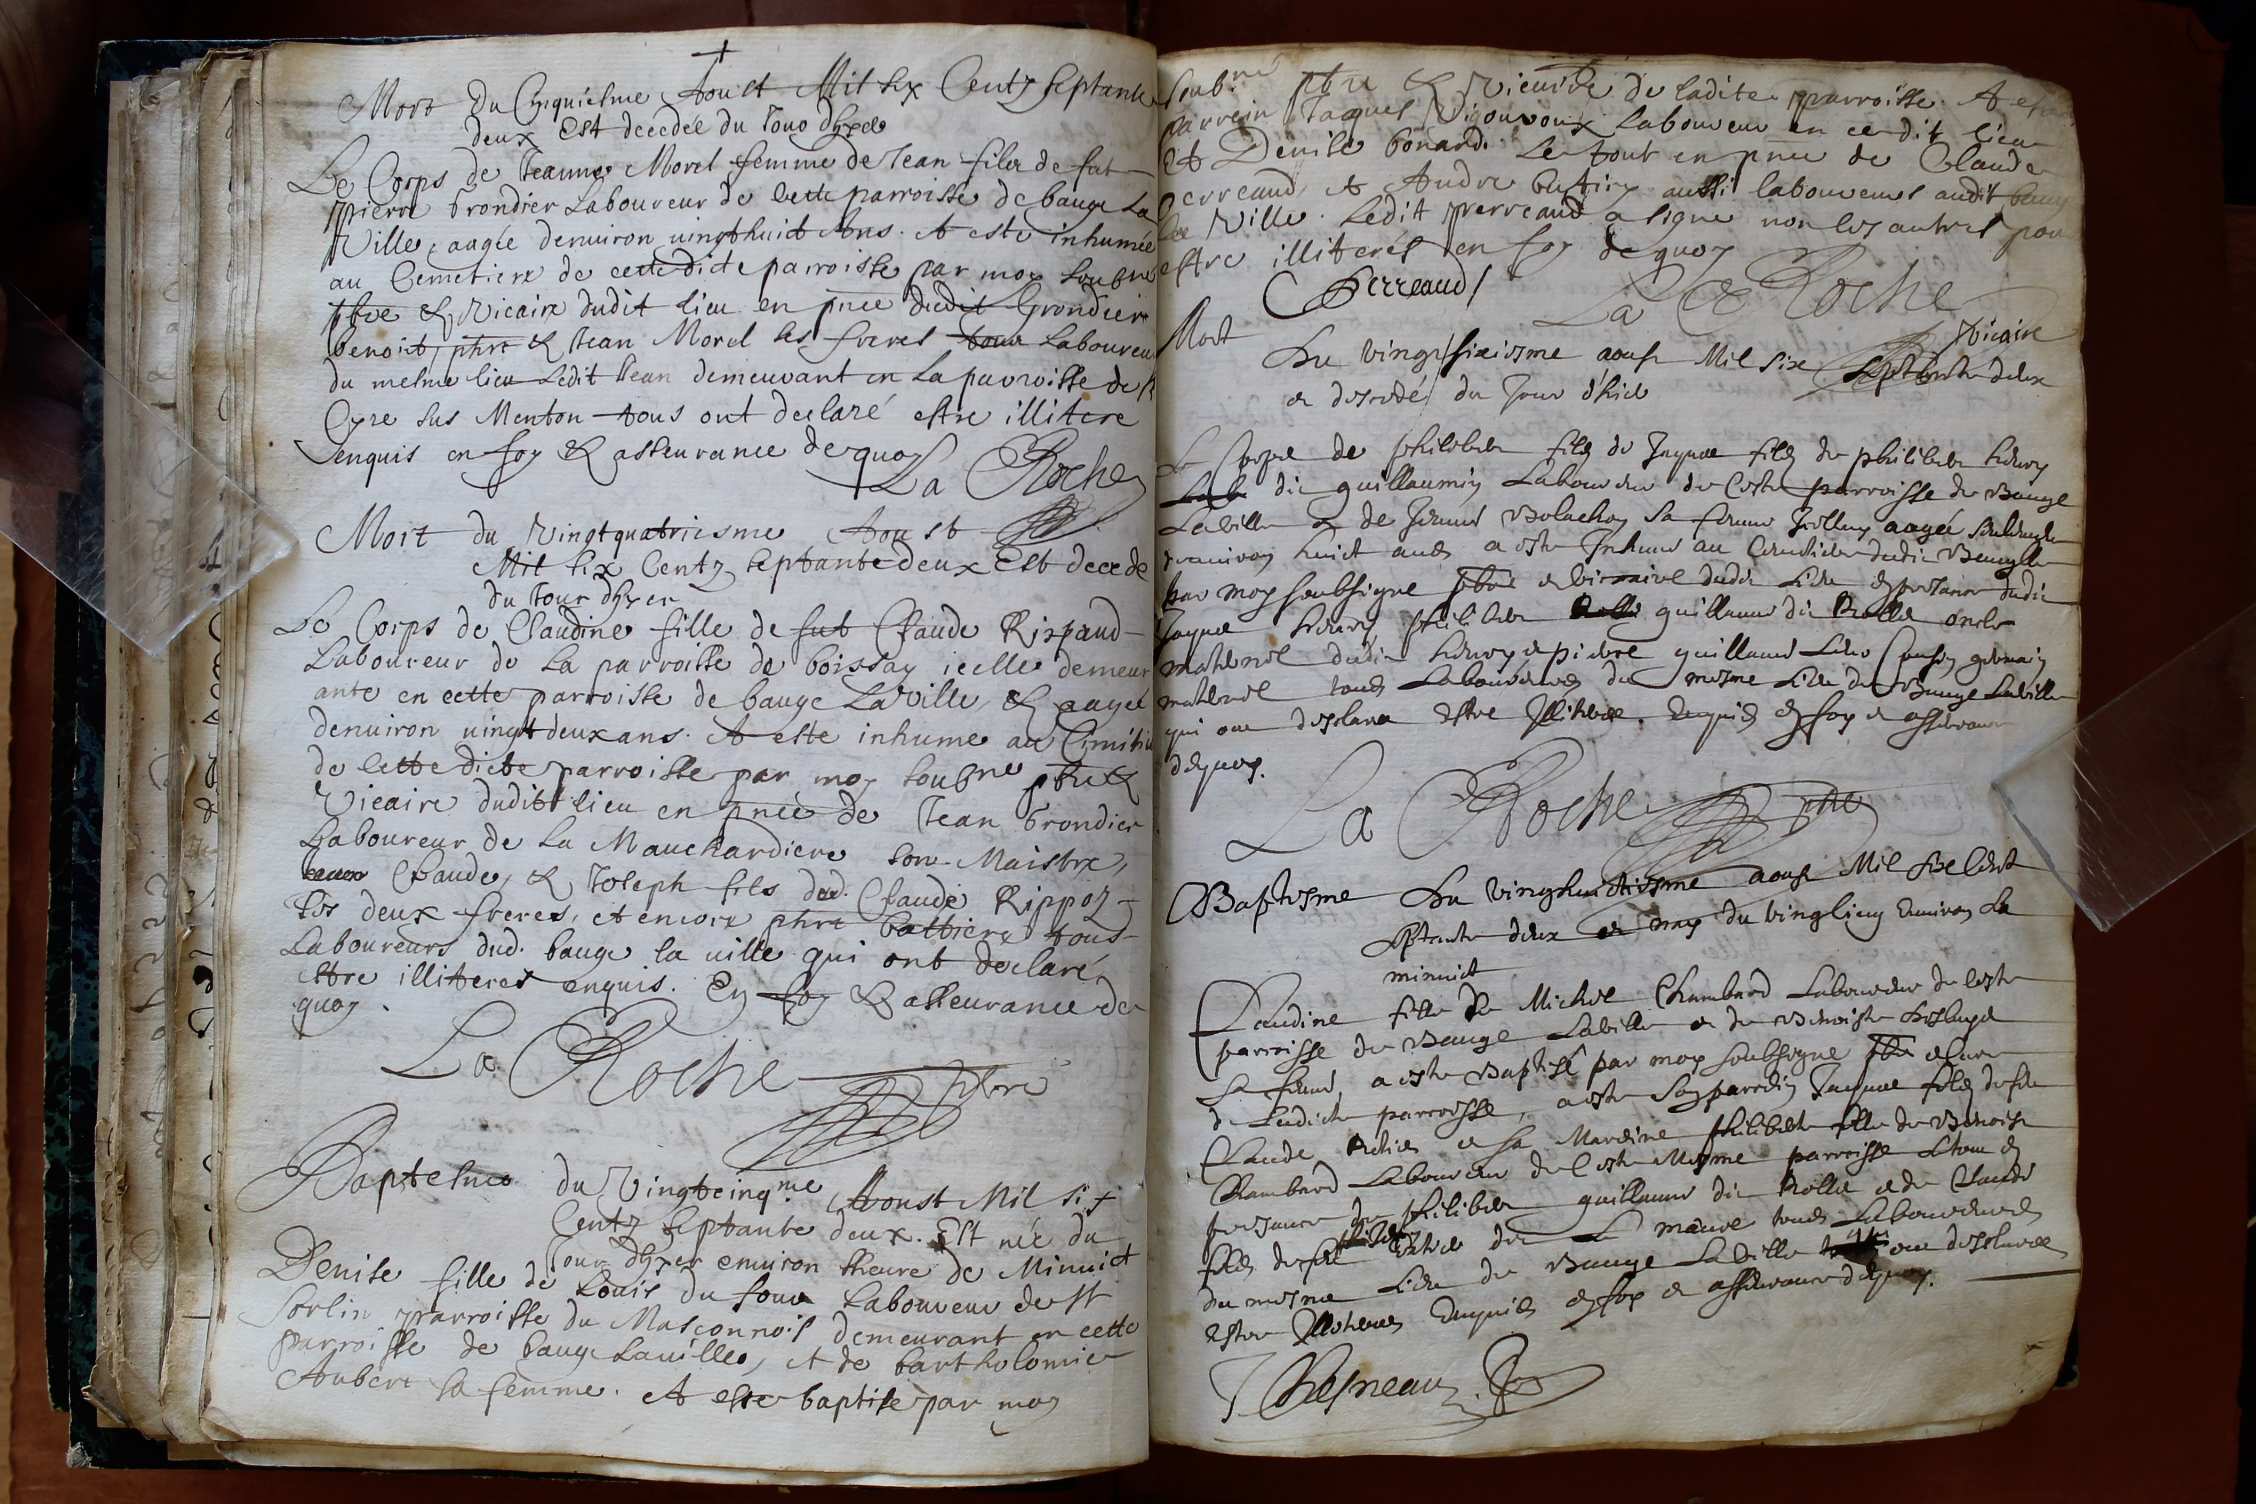 Mort du Cinquiesme Aoust Mil six Centz septante
deux Est decedée du Jour d'hyer
Le Corps de Jeanne Morel femme de Jean filz de fut
Pierre brondier Laboureur de cette parroisse de bauge La
Ville, aagée denuiron uingthuict Ans. A esté inhumée
au Cemetiere de cette dicte parroisse par moy soubne
pbre & Vicaire dudit lieu en pnce dudit brondier
benoict, phrt & Jean Morel ses freres tous Laboureur
du mesme lieu Ledit Jean demeurant en La parroisse de St
Cyre sus Menton tous ont declaré estre illitere
enquis en foy & asseurance dequoy
La Roche
Mort du Vingtquatriesme Aoust
Mil six Centz septante deux Est decede
du Jour dhyer
Le Corps de Claudine fille de fut Claude Rippaud
Laboureur de La parroisse de boissay icelle demeur
ante en cette parroisse de bauge La Ville, & aagée
denuiron uingt deux ans. A esté inhume au Cimitie
de Cette dicte parroisse par moy soubne pbre &
Vicaire dudit lieu en pnce de Jean brondier
Laboureur de La Mauchardiere son Maistre,
Claude, & Joseph fils dud. Claude Rippoz
ses deux freres, et encore phrt battiere tous
Laboureurs dud. bauge la uille qui ont declaré
estre illiteres enquis. En foy & asseurance de
quoy.
La Roche pbre
Baptesme du Vingtcinqme Aoust Mil six
Centz septante deux. Est née du
Jour dhyer enuiron lheure de Minuict
Denise fille de Louis du four Laboureur de St
Sorlin parroisse du Masconnois demeurant en cette
parroisse de bauge Lauille, et de bartholomie
Aubert sa femme. A esté baptise par moy
soubne pbre & Vicaire de ladite parroisse. A esté
parrein Jaques Vigouroux Laboureur en ce dit lieu
et Denise bonard. Le tout en pnce de Claude
perreaud, et Andre buthiry aussi laboureurs audit bauge
La Ville. Ledit perreaud a signe non les autres pour
estre illiterés en foy de quoy
Perreaud
La Roche
Vicaire
Mort
Du vingt sixiesme aoust Mil Six septante deux
est descedé du Jour d'hier
Le Corps de philiber filz de Jaques filz de philiber henry
dit guillaumin Laboureur de Ceste parroisse de Bauge
Laville et de Jeanne Bolachon sa femme aagée
denviron huict ans a esté Inhumé au Cemetiere dudit Bauge
par moy soubsigne pbre et vicaire dudit Lieu en presance dudit
Jaques henry philiber guillaume dit Rolle oncle
maternel dudit henry et pierre guillaume Cousin germain
maternel tous Laboureurs du mesme Lieu de Bauge Laville
qui ont desclaré estre Illiteres. Enquis en foy et asseurance
dequoy.
La Roche pbre
Baptesme Du vinghuictiesme aoust Mil Six Cent
septante deux est nay du vingt environ La
minuict
Claudine fille de Michel Chambard Laboureur de Ceste
parroisse de Bauge Laville et de Benoiste
sa femme, a esté Baptisé par moy soubsigne pbre et Curé
de Ladicte parroisse, a esté son parrein Jaques filz de feu
Claude et sa Mareine philiberte fille de Benoist
Chambard Laboureur de Ceste Mesme parroisse Le tout en
presance de philiber guillaume dit Rolle et de Claude
filz de feu dit Le maire tous Laboureurs
du mesme Lieu de Bauge Laville ont desclaré
estre Illiteres Enquis en foy et asseurance dequoy.
Chesneau